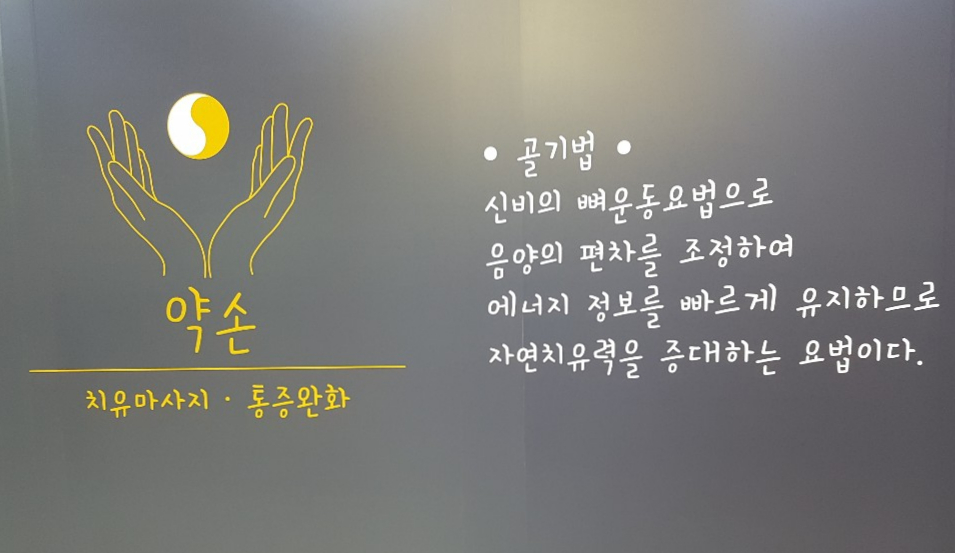 약손
치유마사지 · 통증완화
• 골기법 •
신비의 뼈운동요법으로
음양의 편차를 조정하여
에너지 정보를 빠르게 유지하므로
자연치유력을 증대하는 요법이다.